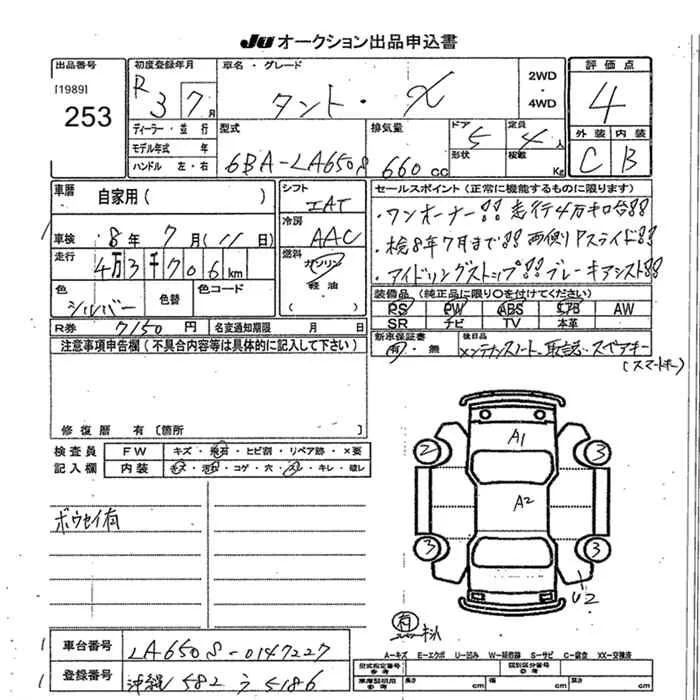 JU オークション出品申込書
出品番号 初度登録年月 車名・グレード 2WD・4WD 評価点
[1989] 253 R3年7月 タント・X 4
ディーラー・並行 型式 排気量 ドア 定員 外装 内装
モデル年式 年 6BA-LA650S 660cc 5 4人 C B
ハンドル 左・右 形状 積載 Kg
車歴 自家用( ) シフト IAT セールスポイント(正常に機能するものに限ります)
車検 8年7月(11日) 冷房 AAC ・ワンオーナー!! 走行4万キロ台!!
走行 4万3千706km 燃料 ガソリン・軽油・( ) ・検8年7月まで!! 両側Pスライド!!
色 シルバー 色替 色コード ・アイドリングストップ!! ブレーキアシスト!!
装備品(純正品に限り○を付けてください)
PS PW ABS エアB AW
R券 7150円 名変通知期限 月 日 SR ナビ TV 本革
注意事項申告欄(不具合内容等は具体的に記入して下さい) 新車保証書 有・無 後日品 メンテナンスノート、取説、スペアキー
(スマートキー)
修復歴 有[箇所
検査員記入欄 FW キズ・飛石・ヒビ割・リペア跡・×要
内装 キズ・汚れ・コゲ・穴・スレ・キレ・破レ
ボウセイ有
A1
2 3
A2
3 3
U2
キズ
A-キズ E-エクボ U-凹み W-補修跡 S-サビ C-腐食 XX-交換済
車台番号 LA650S-0147227 型式指定番号 参考 類別区分番号 参考
登録番号 沖縄 582 う 5186 車庫証明用 参考 長さ cm 幅 cm 高さ cm